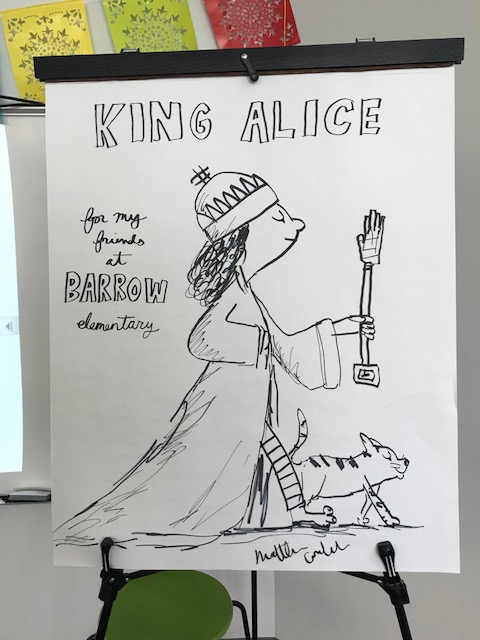 KING ALICE
for my
friends
at
BARROW
elementary